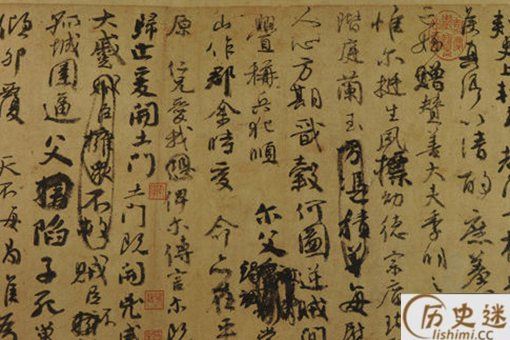 史上輕
侯真卿以清酌庶羞
亡姪贈贊善大夫季明之
惟尔挺生夙標幼德宗廟瑚
階庭蘭玉方憑積善每慰
人心方期戩穀何圖逆賊間
釁稱兵犯順尔父竭誠常
山作郡余時受命亦在平
原仁兄愛我俾尔傳言尔既
歸止爰開土門土門既開凶威
大蹙賊臣擁衆不救賊臣不
孤城圍逼父陷子死巢
傾卵覆天不悔禍誰為
历史迷
lishimi.cc